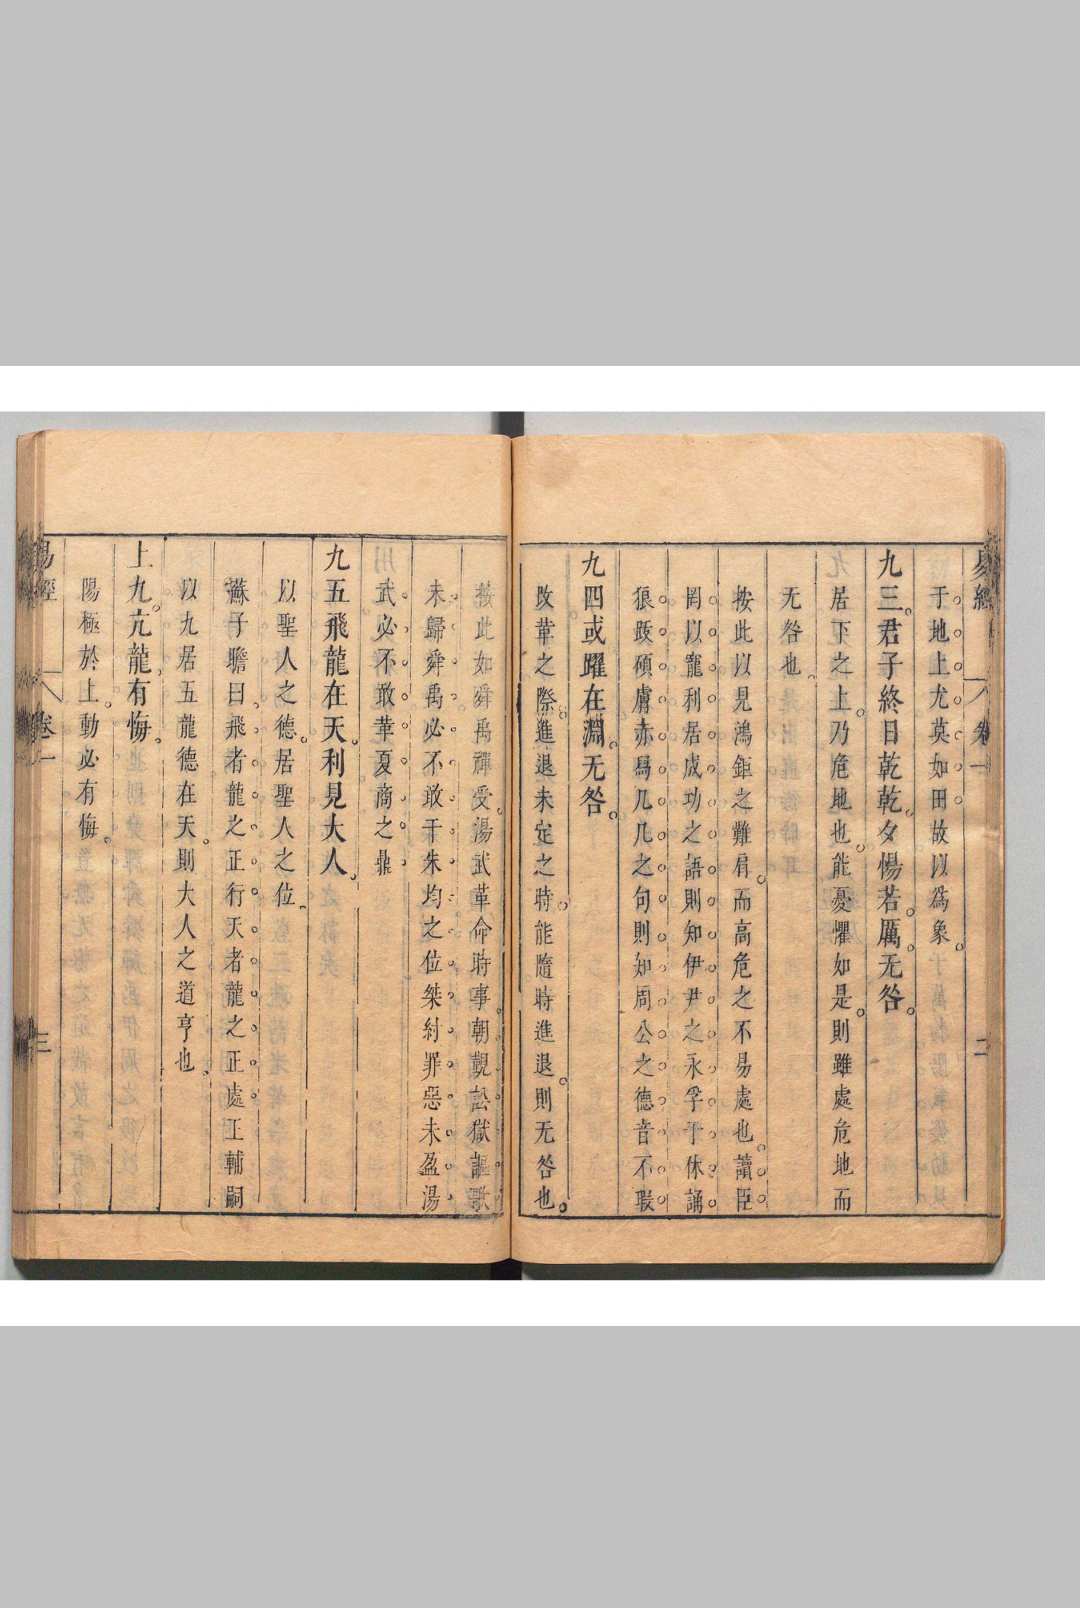 易經 卷一 二
于地上尤莫如田故以爲象
九三君子終日乾乾夕惕若厲无咎
居下之上乃危地也能憂懼如是則雖處危地而
无咎也
按此以見鴻鉅之難肩而高危之不易處也讀臣
罔以寵利居成功之語則知伊尹之永孚于休誦
狼跋碩膚赤舄几几之句則知周公之德音不瑕
九四或躍在淵无咎
改革之際進退未定之時能隨時進退則无咎也
按此如舜禹禪受湯武革命時事朝覲訟獄謳歌
未歸舜禹必不敢干朱均之位桀紂罪惡未盈湯
武必不敢革夏商之鼎
九五飛龍在天利見大人
以聖人之德居聖人之位
蘇子瞻曰飛者龍之正行天者龍之正處王輔嗣
以九居五龍德在天則大人之道亨也
上九亢龍有悔
陽極於上動必有悔
易經 卷一 三